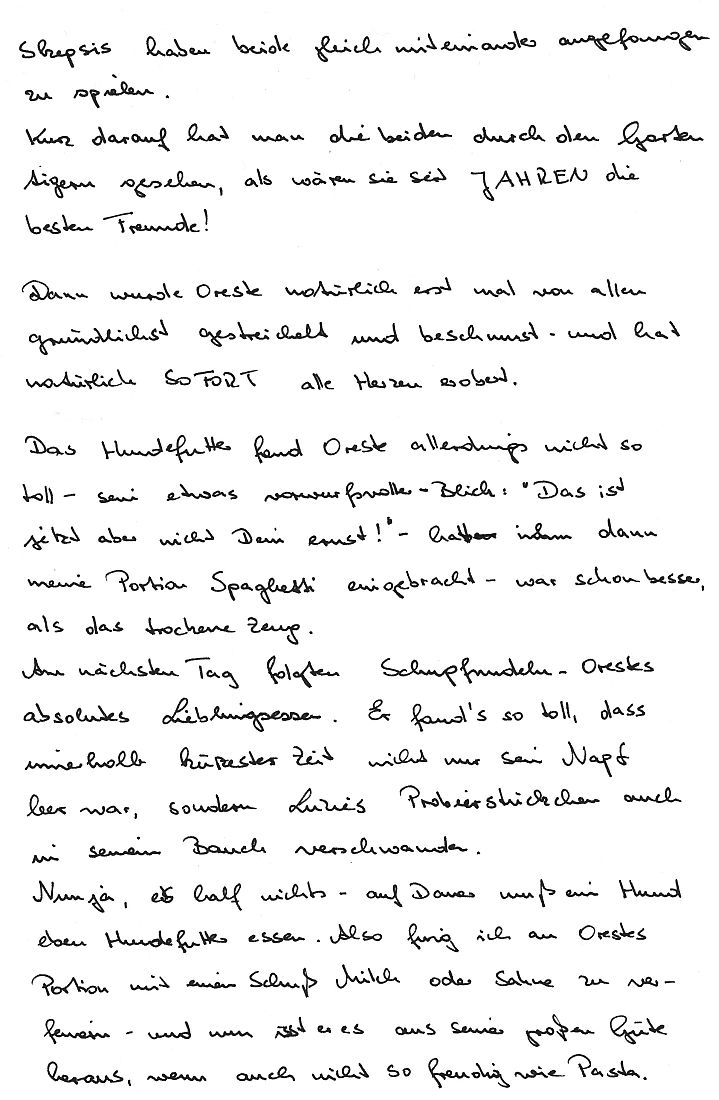 Skepsis haben beide gleich miteinander angefangen
zu spielen.
Kurz darauf hat man die beiden durch den Garten
tigern gesehen, als wären sie seit JAHREN die
besten Freunde!
Dann wurde Oreste natürlich erst mal von allen
gründlichst gestreichelt und beschmust - und hat
natürlich SOFORT alle Herzen erobert.
Das Hundefutter fand Oreste allerdings nicht so
toll - sein etwas vorwurfsvoller-Blick: "Das ist
jetzt aber nicht Dein ernst!" - hatte ihm dann
meine Portion Spaghetti eingebracht - war schon besser,
als das trockene Zeug.
Am nächsten Tag folgten Schupfnudeln - Orestes
absolutes Lieblingsessen. Er fand's so toll, dass
innerhalb kürzester Zeit nicht nur sein Napf
leer war, sondern Luzies Probierstückchen auch
in seinem Bauch verschwanden.
Nun ja, es half nichts - auf Dauer muß ein Hund
eben Hundefutter essen. Also fing ich an Orestes
Portion mit einem Schuß Milch oder Sahne zu ver-
feinern - und nun isst er es aus seiner großen Güte
heraus, wenn auch nicht so freudig wie Pasta.